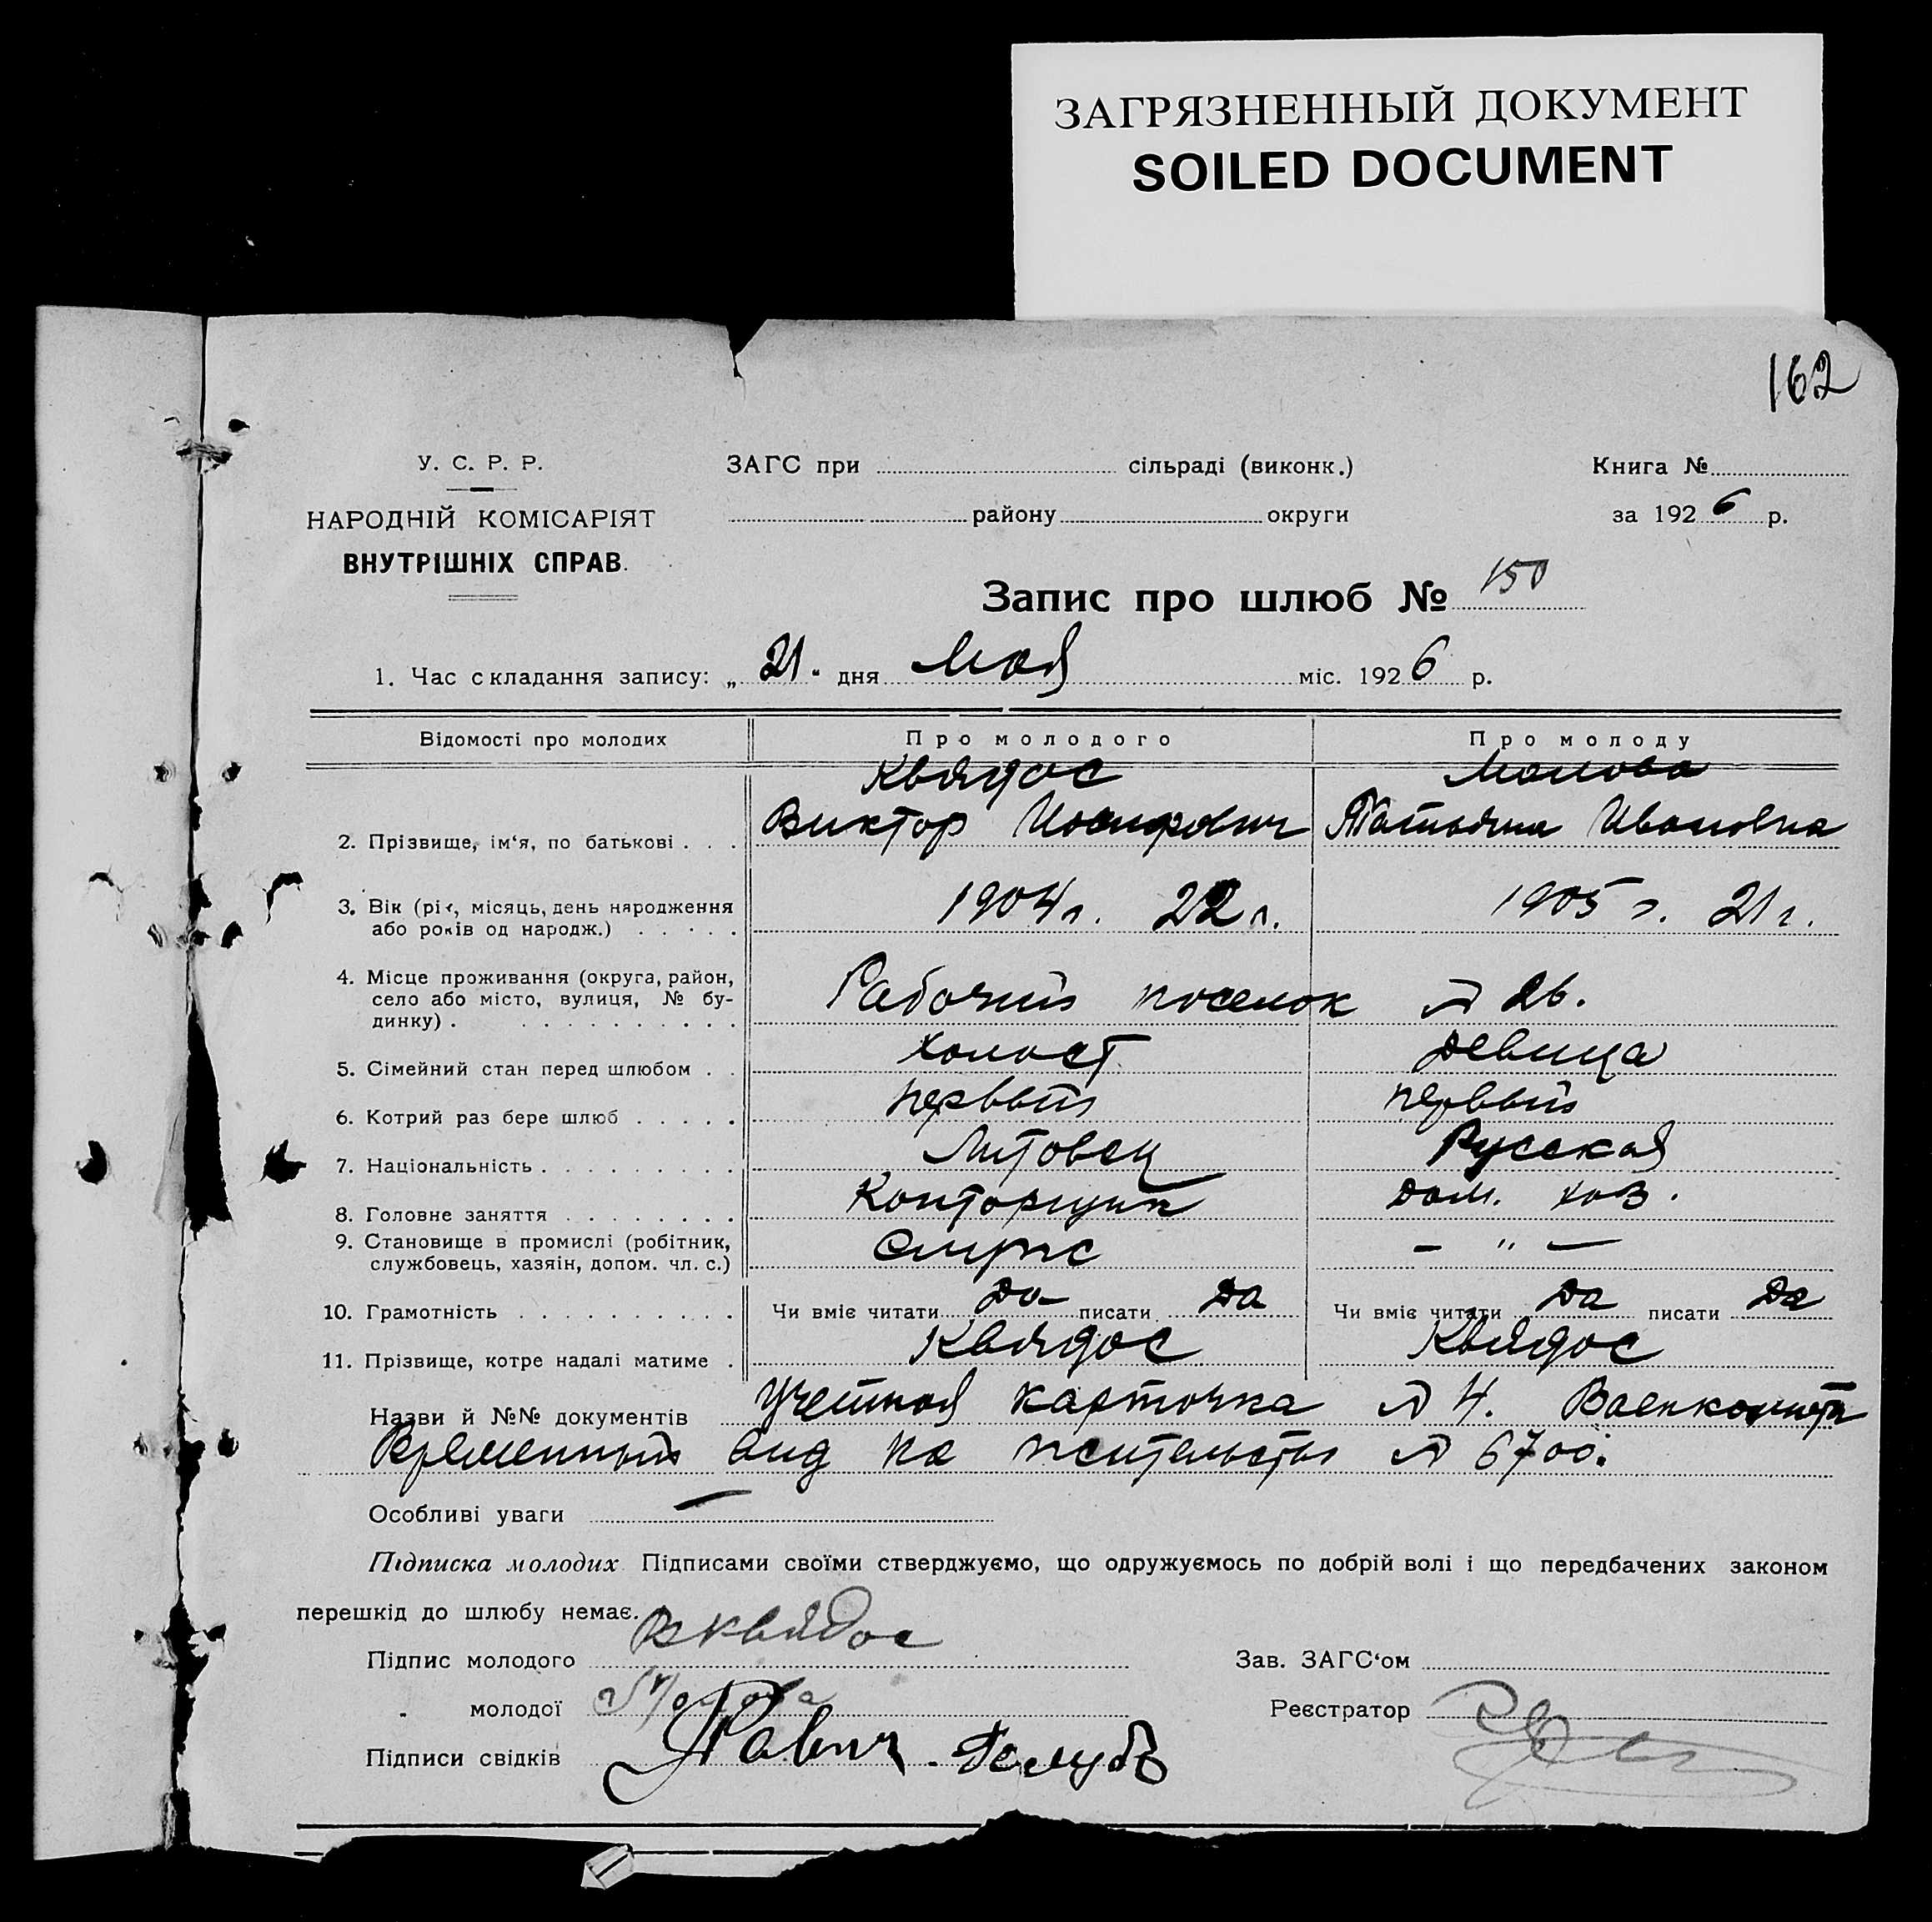 ЗАГРЯЗНЕННЫЙ ДОКУМЕНТ
SOILED DOCUMENT
162
У. С. Р. Р.
НАРОДНІЙ КОМІСАРІЯТ
ВНУТРІШНІХ СПРАВ.
ЗАГС при сільраді (виконк.)
району округи
Книга №
за 1926 р.
Запис про шлюб № 150
1. Час складання запису: „21“ дня Мая міс. 1926 р.
Відомості про молодих Про молодого Про молоду
Квядос
2. Прізвище, ім‘я, по батькові . . . Виктор Иосифович Татьяна Ивановна
3. Вік (рік, місяць, день народження
або років од народж.) . . . . . 1904 г. 22 г. 1905 г. 21 г.
4. Місце проживання (округа, район,
село або місто, вулиця, № бу-
динку) . . . . . . . . . . . Рабочий поселок № 26.
5. Сімейний стан перед шлюбом . . холост девица
6. Котрий раз бере шлюб . . . . . первый первый
7. Національність . . . . . . . . . Литовец Русская
8. Головне заняття . . . . . . . . Конторщик дом. хоз.
9. Становище в промислі (робітник,
службовець, хазяін, допом. чл. с.) — " —
10. Грамотність . . . . . . . . . . Чи вміє читати да писати да Чи вміє читати да писати да
11. Прізвище, котре надалі матиме . Квядос Квядос
Назви й №№ документів Учетная карточка № 4. Военкомата
Временный вид на жительство № 6700.
Особливі уваги —
Підписка молодих Підписами своїми стверджуємо, що одружуємось по добрій волі і що передбачених законом
перешкід до шлюбу немає.
Підпис молодого В Квядос
Зав. ЗАГС‘ом
„ молодої
Реєстратор
Підписи свідків Равич. Голуб